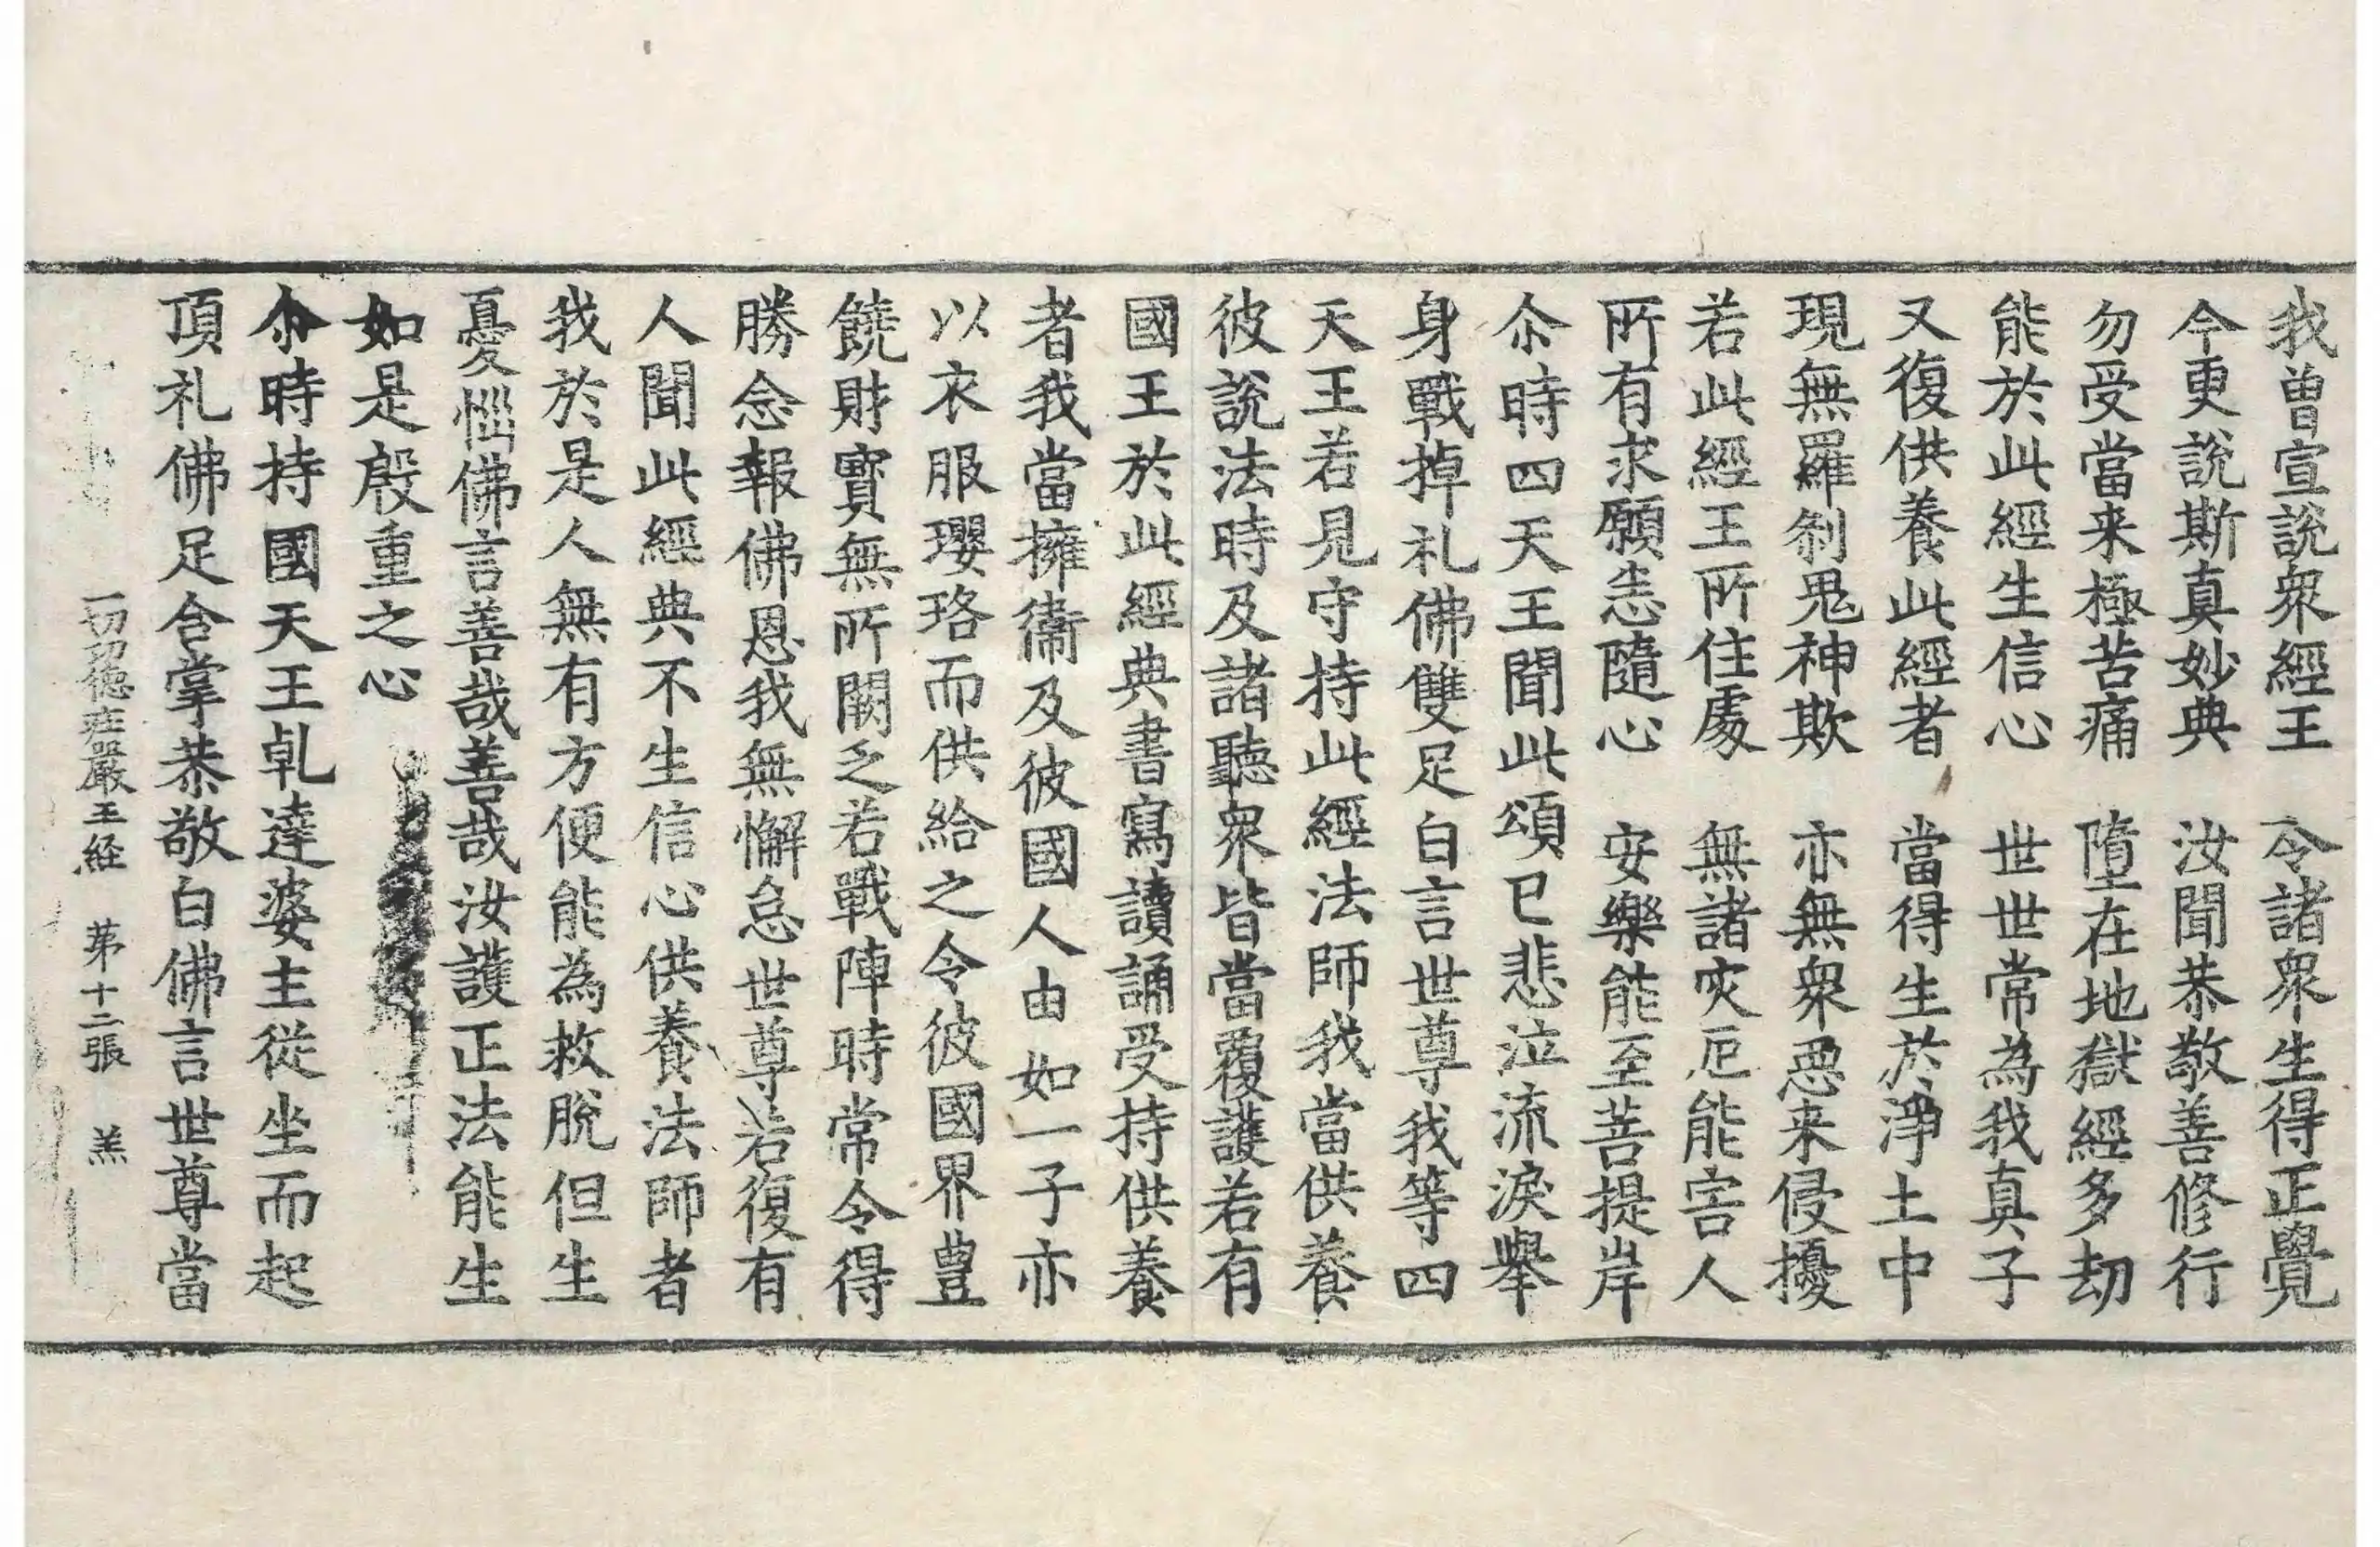 我曾宣說衆經王　令諸衆生得正覺
今更說斯真妙典　汝聞恭敬善修行
勿受當来極苦痛　墮在地獄經多劫
能於此經生信心　世世常為我真子
又復供養此經者　當得生於淨土中
現無羅刹鬼神欺　亦無衆惡来侵擾
若此經王所住處　無諸灾厄能害人
所有求願恙隨心　安樂能至菩提岸
尒時四天王聞此頌已悲泣流淚舉
身戰掉礼佛雙足白言世尊我等四
天王若見守持此經法師我當供養
彼說法時及諸聽衆皆當覆護若有
國王於此經典書寫讀誦受持供養
者我當擁衛及彼國人由如一子亦
以衣服瓔珞而供給之令彼國界豊
饒財寳無所闕乏若戰陣時常令得
勝念報佛恩我無懈怠世尊若復有
人聞此經典不生信心供養法師者
我於是人無有方便能為救脫但生
憂惱佛言善哉善哉汝護正法能生
如是慇重之心
尒時持國天王乹達婆主從坐而起
頂礼佛足合掌恭敬白佛言世尊當
一切功德庄嚴王経　苐十二張　羔